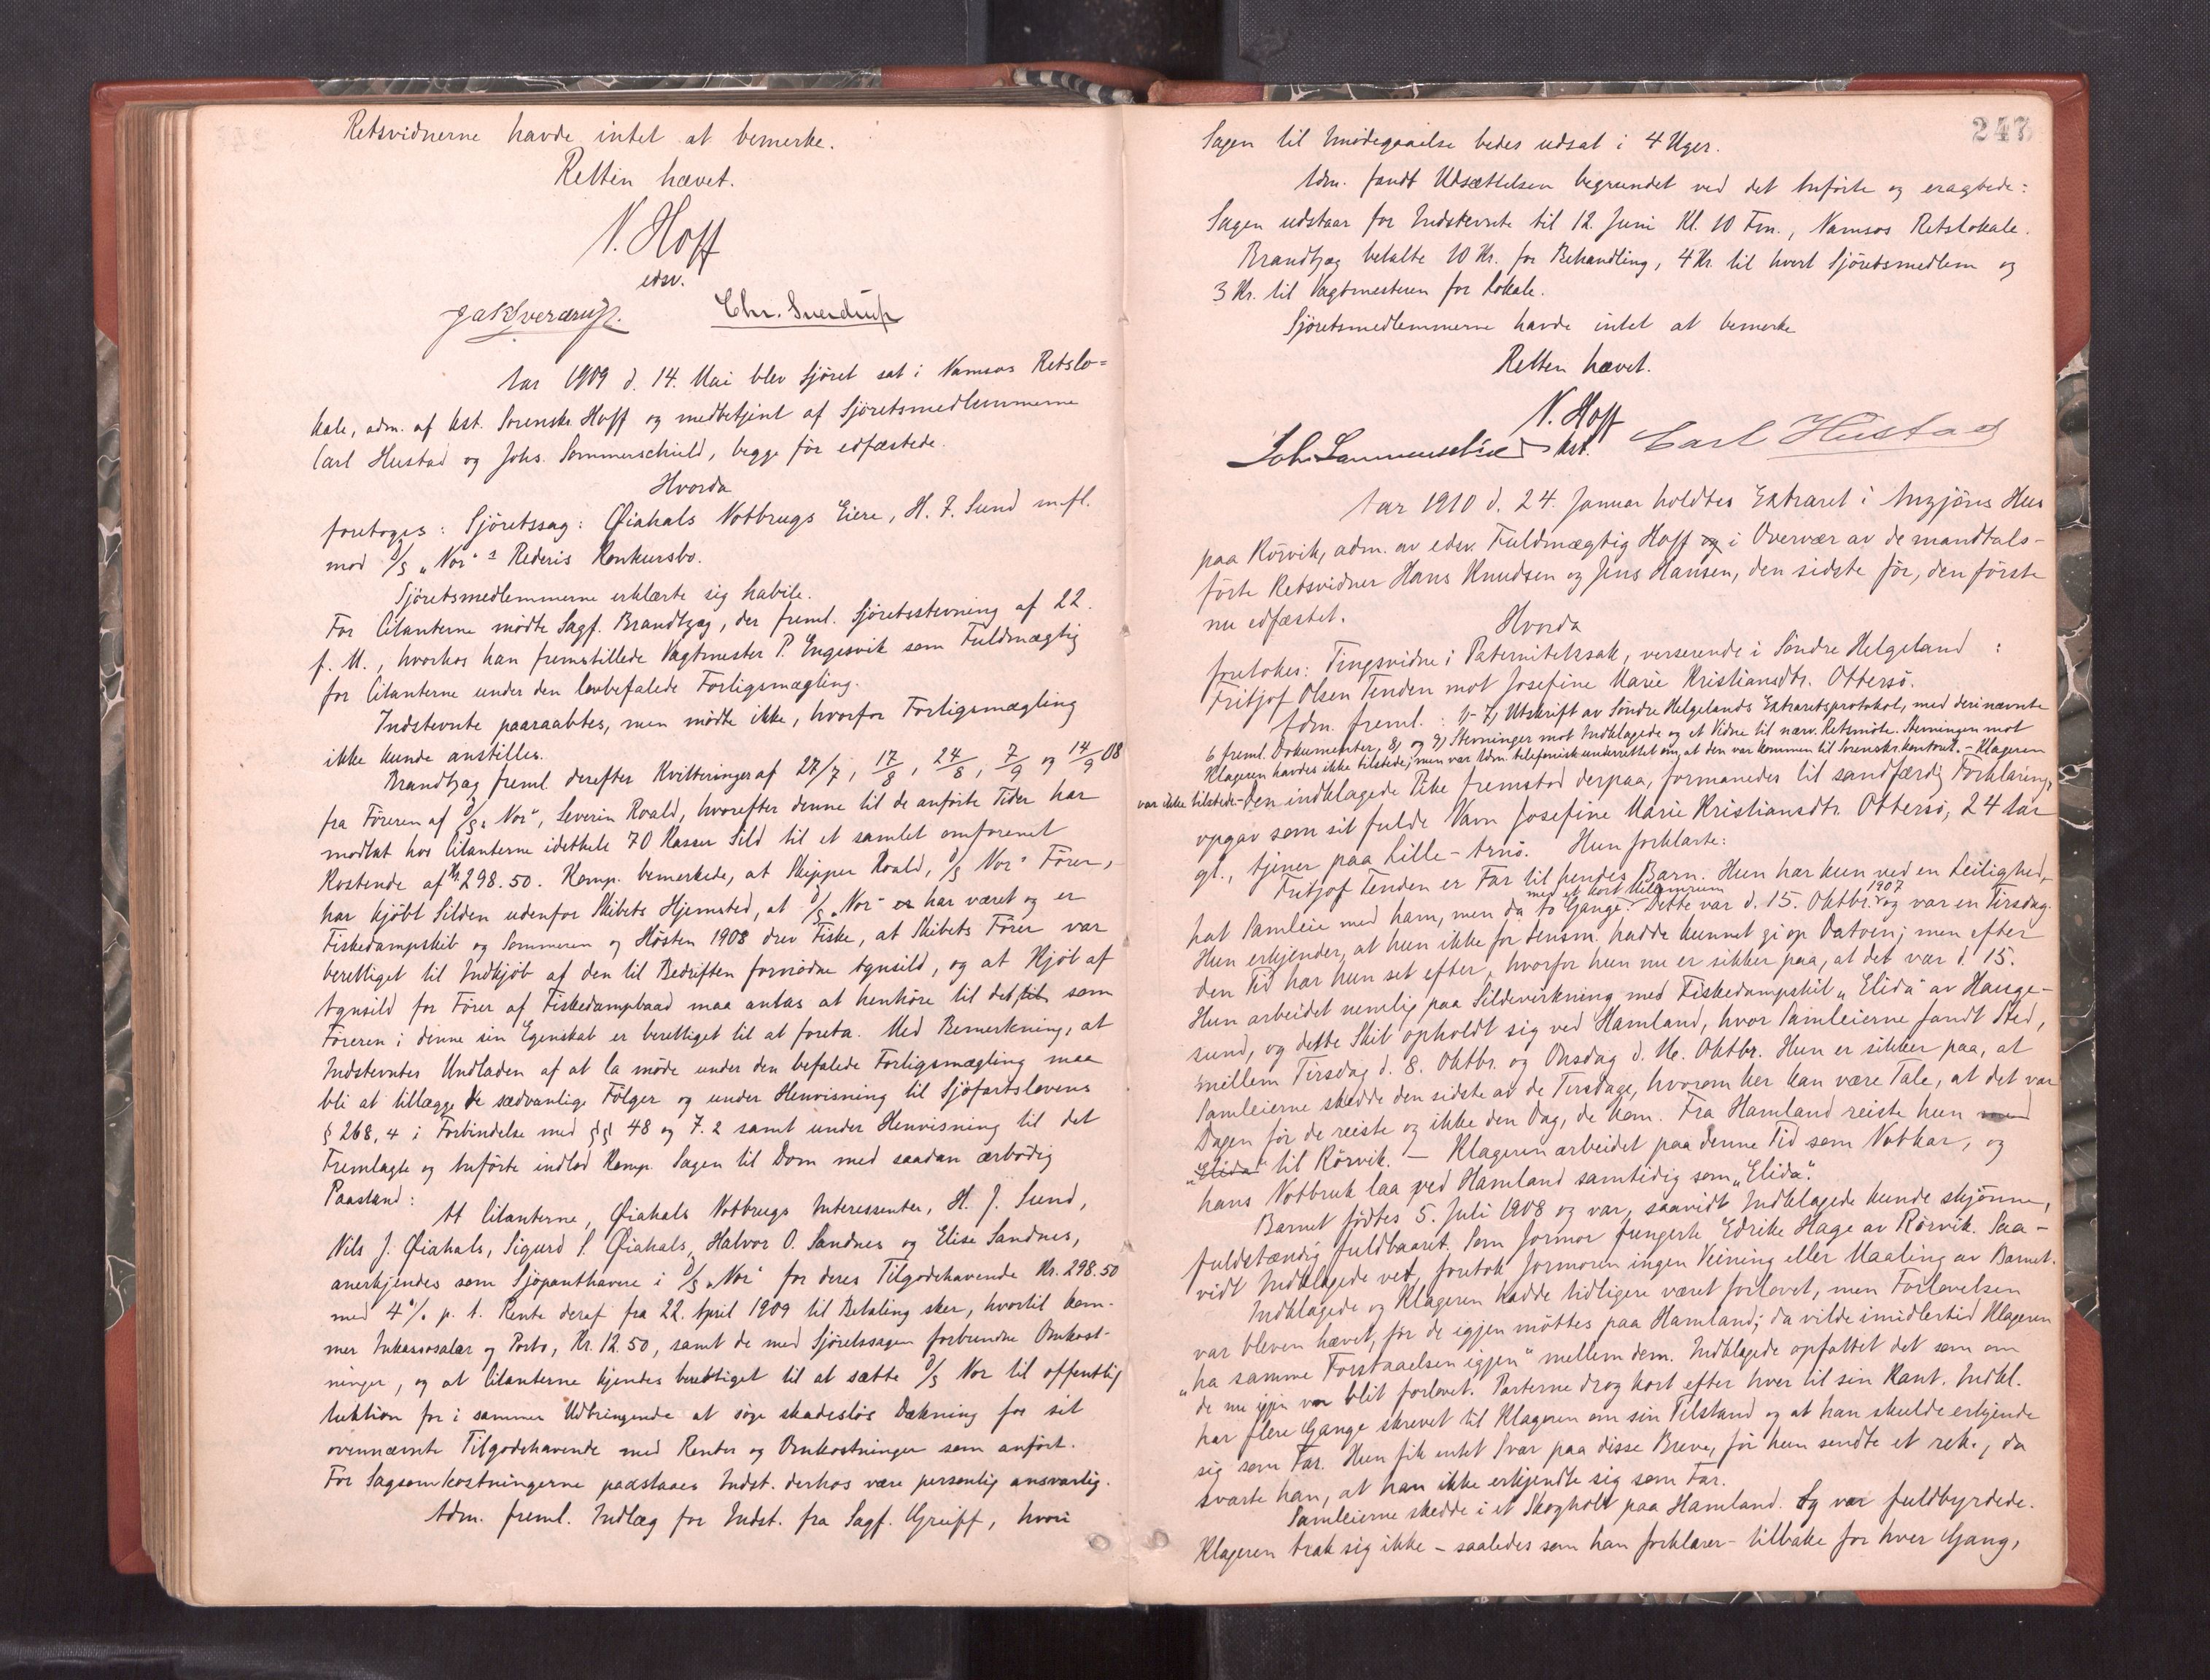 Retsvidnerne havde intet at bemerke.
Retten hævet.
N. Hoff
edsv.
Jak Sverdrup. Chr. Sverdrup
Aar 1909 d. 14. Mai blev Sjöret sat i Namsos Retslo=
kale, adm. af kst. Sorenskr. Hoff og medbetjent af Sjöretsmedlemmerne
Carl Hustad og Johs. Sommerschield, begge för edfæstede.
Hvorda
foretoges: Sjöretssag: Øiahals Notbrugs Eiere, H. J. Sund m.fl.
mod D/S „Nor“s Rederis Konkursbo.
Sjöretsmedlemmerne erklærte sig habile.
For Citanterne mödte Sagf. Brandtzæg, der freml. Sjöretsstevning af 22.
f. M., hvorhos han fremstillede Vagtmester P. Engesvik som Fuldmægtig
for Citanterne under den lovbefalede Forligsmægling.
Indstevnte paaraabtes, men mödte ikke, hvorfor Forligsmægling
ikke kunde anstilles.
Brandtzæg freml. derefter Kvitteringer af 27/7, 17/8, 24/8, 7/9 og 14/9 08
fra Föreren af D/S „Nor“, Severin Roald, hvorefter denne til de anförte Tider har
modtat hos Citanterne idethele 70 Kasser Sild til et samlet omforenet
Kostende af Kr. 298.50. Komp. bemerkede, at Skipper Roald, D/S „Nor“ Förer,
har kjöbt Silden udenfor Skibets Hjemsted, at D/S „Nor“ er har været og er
Fiskedampskib og Sommeren og Hösten 1908 drev Fiske, at Skibets Förer var
berettiget til Indkjöb af den til Bedriften fornödne Agnsild, og at Kjöb af
Agnsild for Förer af Fiskedampbaad maa antas at henhöre til det, som
Föreren i denne sin Egenskab er berettiget til at foreta. Med Bemerkning, at
Indstevntes Undladen af at la möde under den befalede Forligsmægling maa
bli at tillægge de sædvanlige Fölger og under Henvisning til Sjöfartslovens
§ 268, 4 i Forbindelse med §§ 48 og 7. 2 samt under Henvisning til det
Fremlagte og Anförte indlod Komp. Sagen til Dom med saadan ærbödig
Paastand:
At Citanterne, Øiahals Notbrugs Interessenter, H. J. Sund,
Nils J. Øiahals, Sigurd S. Øiahals, Halvor O. Sandnes og Elise Sandnes,
anerkjendes som Sjöpanthavere i D/S „Nor“ for deres Tilgodehavende Kr. 298.50
med 4% p. A. Rente deraf fra 22. April 1909 til Betaling sker, hvortil kom-
mer Inkassosalær og Porto, Kr. 12.50, samt de med Sjöretssagen forbundne Omkost-
ninger, og at Citanterne kjendes berettiget til at sætte D/S Nor til offentlig
Auktion for i sammes Udbringende at söge skadeslös Dækning for sit
ovennævnte Tilgodehavende med Renter og Omkostninger som anfört.
For Sagsomkostningerne paastaaes Indst. derhos være personlig ansvarlig.
Adm. freml. Indlæg for Indst. fra Sagf. Greiff, hvori
247
Sagen til Imödegaaelse bedes udsat i 4 Uger.
Adm. fandt Udsættelsen begrundet ved det Anförte og eragtede:
Sagen udstaar for Indstevnte til 12. Juni Kl. 10 Fm., Namsos Retslokale.
Brandtzæg betalte 10 Kr. for Behandling, 4 Kr. til hvert Sjöretsmedlem og
3 Kr. til Vagtmesteren for Lokale.
Sjöretsmedlemmerne havde intet at bemerke
Retten hævet.
N. Hoff
kst.
Joh. Sommerschield Carl Hustad
Aar 1910 d. 24. Januar holdtes Extraret i Anzjöns Hus
paa Rörvik, adm. av edsv. Fuldmægtig Hoff og i Overvær av de mandtals-
förte Retsvidner Hans Knudsen og Jens Hansen, den sidste för, den förste
nu edfæstet.
Hvorda
foretokes: Tingsvidne i Paternitetssak, verserende i Söndre Helgeland:
Fritjof Olsen Tenden mot Josefine Marie Kristiansdtr. Ottersö.
Adm. freml.: 1)-7) Utskrift av Söndre Helgelands Extraretsprotokol, med deri nævnte
6 freml. Dokumenter, 8) og 9) Stevninger mot Indklagede og et Vidne til nærv. Retsmöte. Stevningen mot
Klageren havdes ikke tilstede, men var Adm. telefonisk underrettet om, at den var kommen til Sorenskr.kontoret. - Klageren
var ikke tilstede. - Den indklagede Pike fremstod derpaa, formanedes til sandfærdig Forklaring,
opgav som sit fulde Navn Josefine Marie Kristiansdtr. Ottersö, 24 Aar
gl., tjener paa Lille-Arnö. Hun forklarte:
Fritjof Tenden er Far til hendes Barn. Hun har kun ved en Leilighed,
hat Samleie med ham, men da to Gange med et kort Mellemrum. Dette var d. 15. Oktbr. 1907 og var en Tirsdag.
Hun erkjender, at hun ikke for Lensm. hadde kunnet gi op Datoen; men efter
den Tid har hun set efter, hvorfor hun nu er sikker paa, at det var d. 15.
Hun arbeidet nemlig paa Sildevirkning med Fiskedampskib „Elida“ av Hauge-
sund, og dette Skib opholdt sig ved Hamland, hvor Samleierne fandt Sted,
mellem Tirsdag d. 8. Oktbr. og Onsdag d. 16. Oktbr. Hun er sikker paa, at
Samleierne skedde den sidste av de Tirsdage, hvorom her kan være Tale, at det var
Dagen för de reiste og ikke den Dag, de kom. Fra Hamland reiste hun med
„Elida“ til Rörvik. - Klageren arbeidet paa denne Tid som Notkar, og
hans Notbruk laa ved Hamland samtidig som „Elida“.
Barnet födtes 5. Juli 1908 og var, saavidt Indklagede kunde skjönne,
fuldstændig fuldbaaret. Som Jormor fungerte Edrike Hage av Rörvik. Saa-
vidt Indklagede vet, foretok Jormoren ingen Veining eller Maaling av Barnet.
Indklagede og Klageren hadde tidligere været forlovet, men Forlovelsen
var bleven hævet, för de igjen möttes paa Hamland; da vilde imidlertid Klageren
„ha samme Forstaaelsen igjen“ mellem dem. Indklagede opfattet det som om
de nu igjen var blit forlovet. Parterne drog kort efter hver til sin Kant. Indkl.
har flere Gange skrevet til Klageren om sin Tilstand og at han skulde erkjende
sig som Far. Hun fik intet Svar paa disse Breve, för hun sendte et rek., da
svarte han, at han ikke erkjendte sig som Far.
Samleierne skedde i et Skogholt paa Hamland. Og var fuldbyrdede.
Klageren trak sig ikke - saaledes som han forklarer - tilbake for hver Gang,